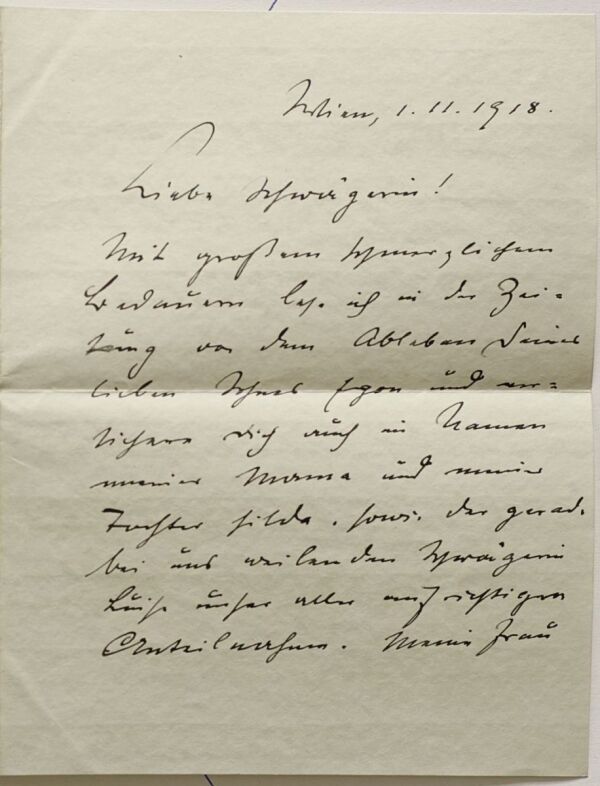 Wien, 1.11.1918.
Liebe Schwägerin!
Mit großem schmerzlichem
Bedauern lese ich in der Zei-
tung von dem Ableben Deines
lieben Sohnes Egon und ver-
sichere Dich auch im Namen
meiner Mama und meiner
Tochter Hilda, sowie der gerade
bei uns weilenden Schwägerin
Luise unser aller aufrichtigen
Anteilnahme. Meine Frau